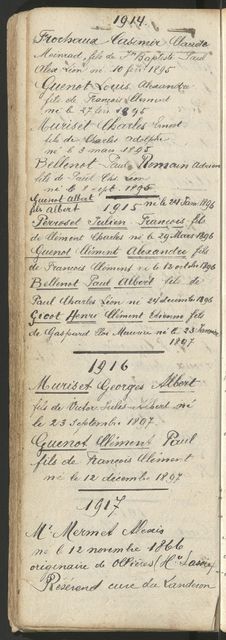 1914.
Frochaux Casimir Claude
Meinrad, fils de Jn Baptiste Paul
Alex Léon né 10 févr 1895
Guenot Louis Alexandre
fils de François Clément
né le 27 1895
Muriset Charles Ernest
fils de Charles Adolphe
né le 3 mars 1895
Bellenot Paul Romain Adrien
fils de Paul Chs Léon
né le 8 sept. 1895
Guenot Albert
fils Albert né le 24 1896
1915
Perroset Julien François fils
de Clément Charles né le 29 Mars 1896
Guenot Clément Alexandre fils
de Francois Clément né le 13 octobre 1896
Bellenot Paul Albert fils de
Paul Charles Léon né le 24 décembre 1896
Gicot Henri Clément Etienne fils
de Gaspard Maurice né le 23 Janvier
1897
1916
Muriset Georges Albert
fils de Victor Jules Albert né
le 23 septembre 1897
Guenot Clément Paul
fils de François Clément
né le 12 décembre 1897
1917
Mr Mermet Alexis
né le 12 novembre 1866
originaire de (Hte Savoie)
Révérend curé du Landeron